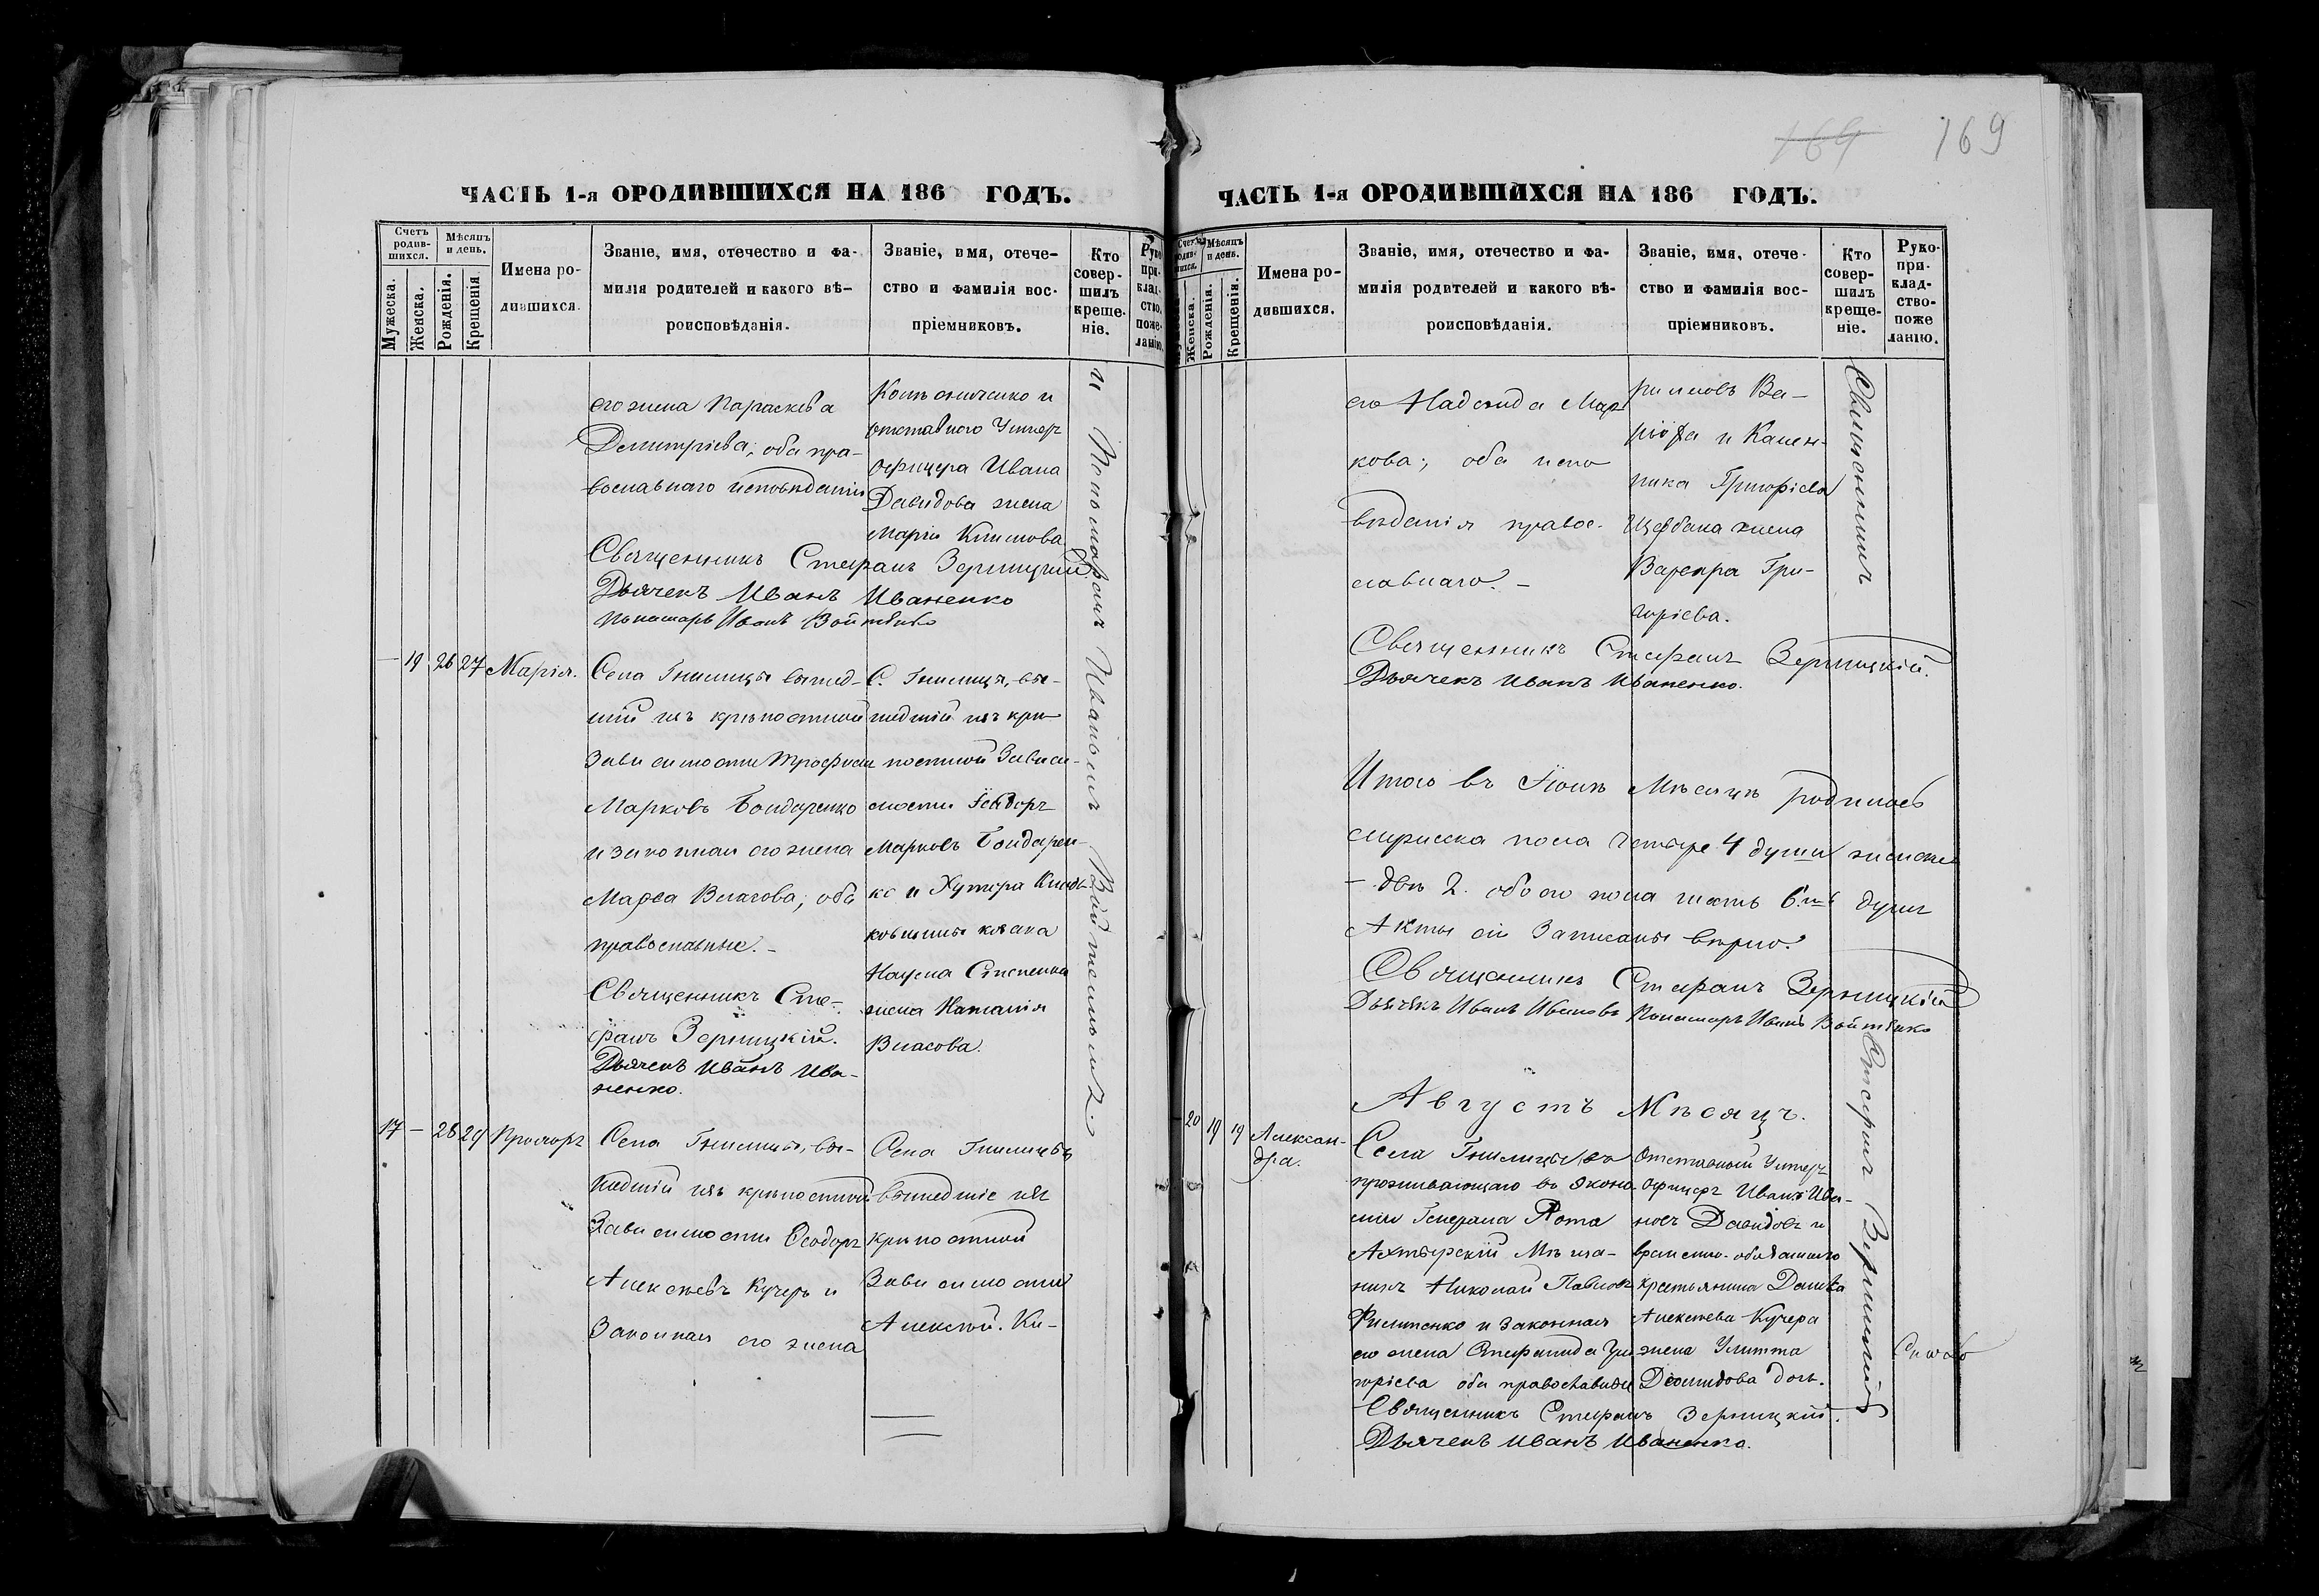 169
169
ЧАСТЬ 1-я ОРОДИВШИХСЯ НА 186 ГОДЪ.
Счетъ родив- шихся.
Мѣсяцъ и день.
Мужеска.
Женска.
Рожденія.
Крещенія
Имена ро-
дившихся.
Званіе, имя, отечество и фа-
милія родителей и какого вѣ-
роисповѣданія.
Званіе, имя, отече-
ство и фамилія вос-
пріемниковъ.
Кто совер- шилъ креще- ніе.
Руко при- клад- ство, поже- ланію.
его жена Параскева
Димитріева; оба пра-
вославнаго исповѣданія
отставного Унтеръ
офицера Ивана
Давидова жена
Марія Климова
Священникъ Стефанъ Зерницкій
Дьячекъ Иванъ Иваненко
Пономарь Иванъ Войтенко
и Пономаремъ Иваномъ Войтенкомъ.
— 19 26 27 Марія.
Села Гнилицы вышед-
шій изъ крѣпостной
зависимости Трофимъ
Марковъ Бондаренко
и законная его жена
Марѳа Власова; оба
православные. —
Священникъ Сте-
фанъ Зерницкій.
Дьячекъ Иванъ Ива-
ненко.
С. Гнилицы, вы-
шедшій изъ крѣ-
постной зависи-
мости Ѳеодоръ
Марковъ Бондарен-
ко и Хутора
козака
Наума Степенка
жена Наталія
Власова.
17 — 28 29 Прохоръ
Села Гнилицы, вы-
шедшій изъ крѣпостной
зависимости Ѳеодоръ
Алексѣевъ Кучеръ и
Законная его жена
Села Гнилицы
вышедшіе изъ
крѣпостной
Зависимости
Алексѣй. Ки-
ЧАСТЬ 1-я ОРОДИВШИХСЯ НА 186 ГОДЪ.
Счетъ родив- шихся.
Мѣсяцъ и день.
Женска.
Рожденія.
Крещенія.
Имена ро-
дившихся.
Званіе, имя, отечество и фа-
милія родителей и какого вѣ-
роисповѣданія.
Званіе, имя, отече-
ство и фамилія вос-
пріемниковъ.
Кто совер- шилъ креще- ніе.
Руко- при- клад- ство- поже ланію.
его Надежда Мар-
кова; оба испо
вѣданія правос-
лавнаго. —
рилловъ Ва-
ника Григорієва
Щербака жена
Варвара Гри-
горіева.
Священникъ Стефанъ Зерницкій.
Дьячекъ Иванъ Иваненко.
Священникъ
Итого въ Іюлѣ Мѣсяцѣ родилось
мужеска пола четыре 4 души женска
— двѣ 2. обоего пола шесть 6.ть душъ
Акты сіи Записаны вѣрно.
Священникъ Стефанъ Зерницкій
Дьячекъ Иванъ Ивановъ Пономарь Иванъ Войтенко
Августъ Мѣсяцъ.
— 20 19 19 Алексан-
дра.
Села Гнилицы, въ
проживающаго въ эконо-
міи Генерала Рота
Ахтырскій Мѣща-
нинъ Николай Павловъ
Филипенко и законная
его жена Стефанида Гри
горіева оба православные
Отставной Унтеръ
офицеръ Иванъ Ива-
новъ Давидовъ и
временно-обязаннаго
крестьянина
Алексѣева Кучера
жена Улитта
Діомидова дочь.
Священникъ Стефанъ Зерницкій.
Дьячекъ Иванъ Иваненко.
Стефанъ Зерницкій